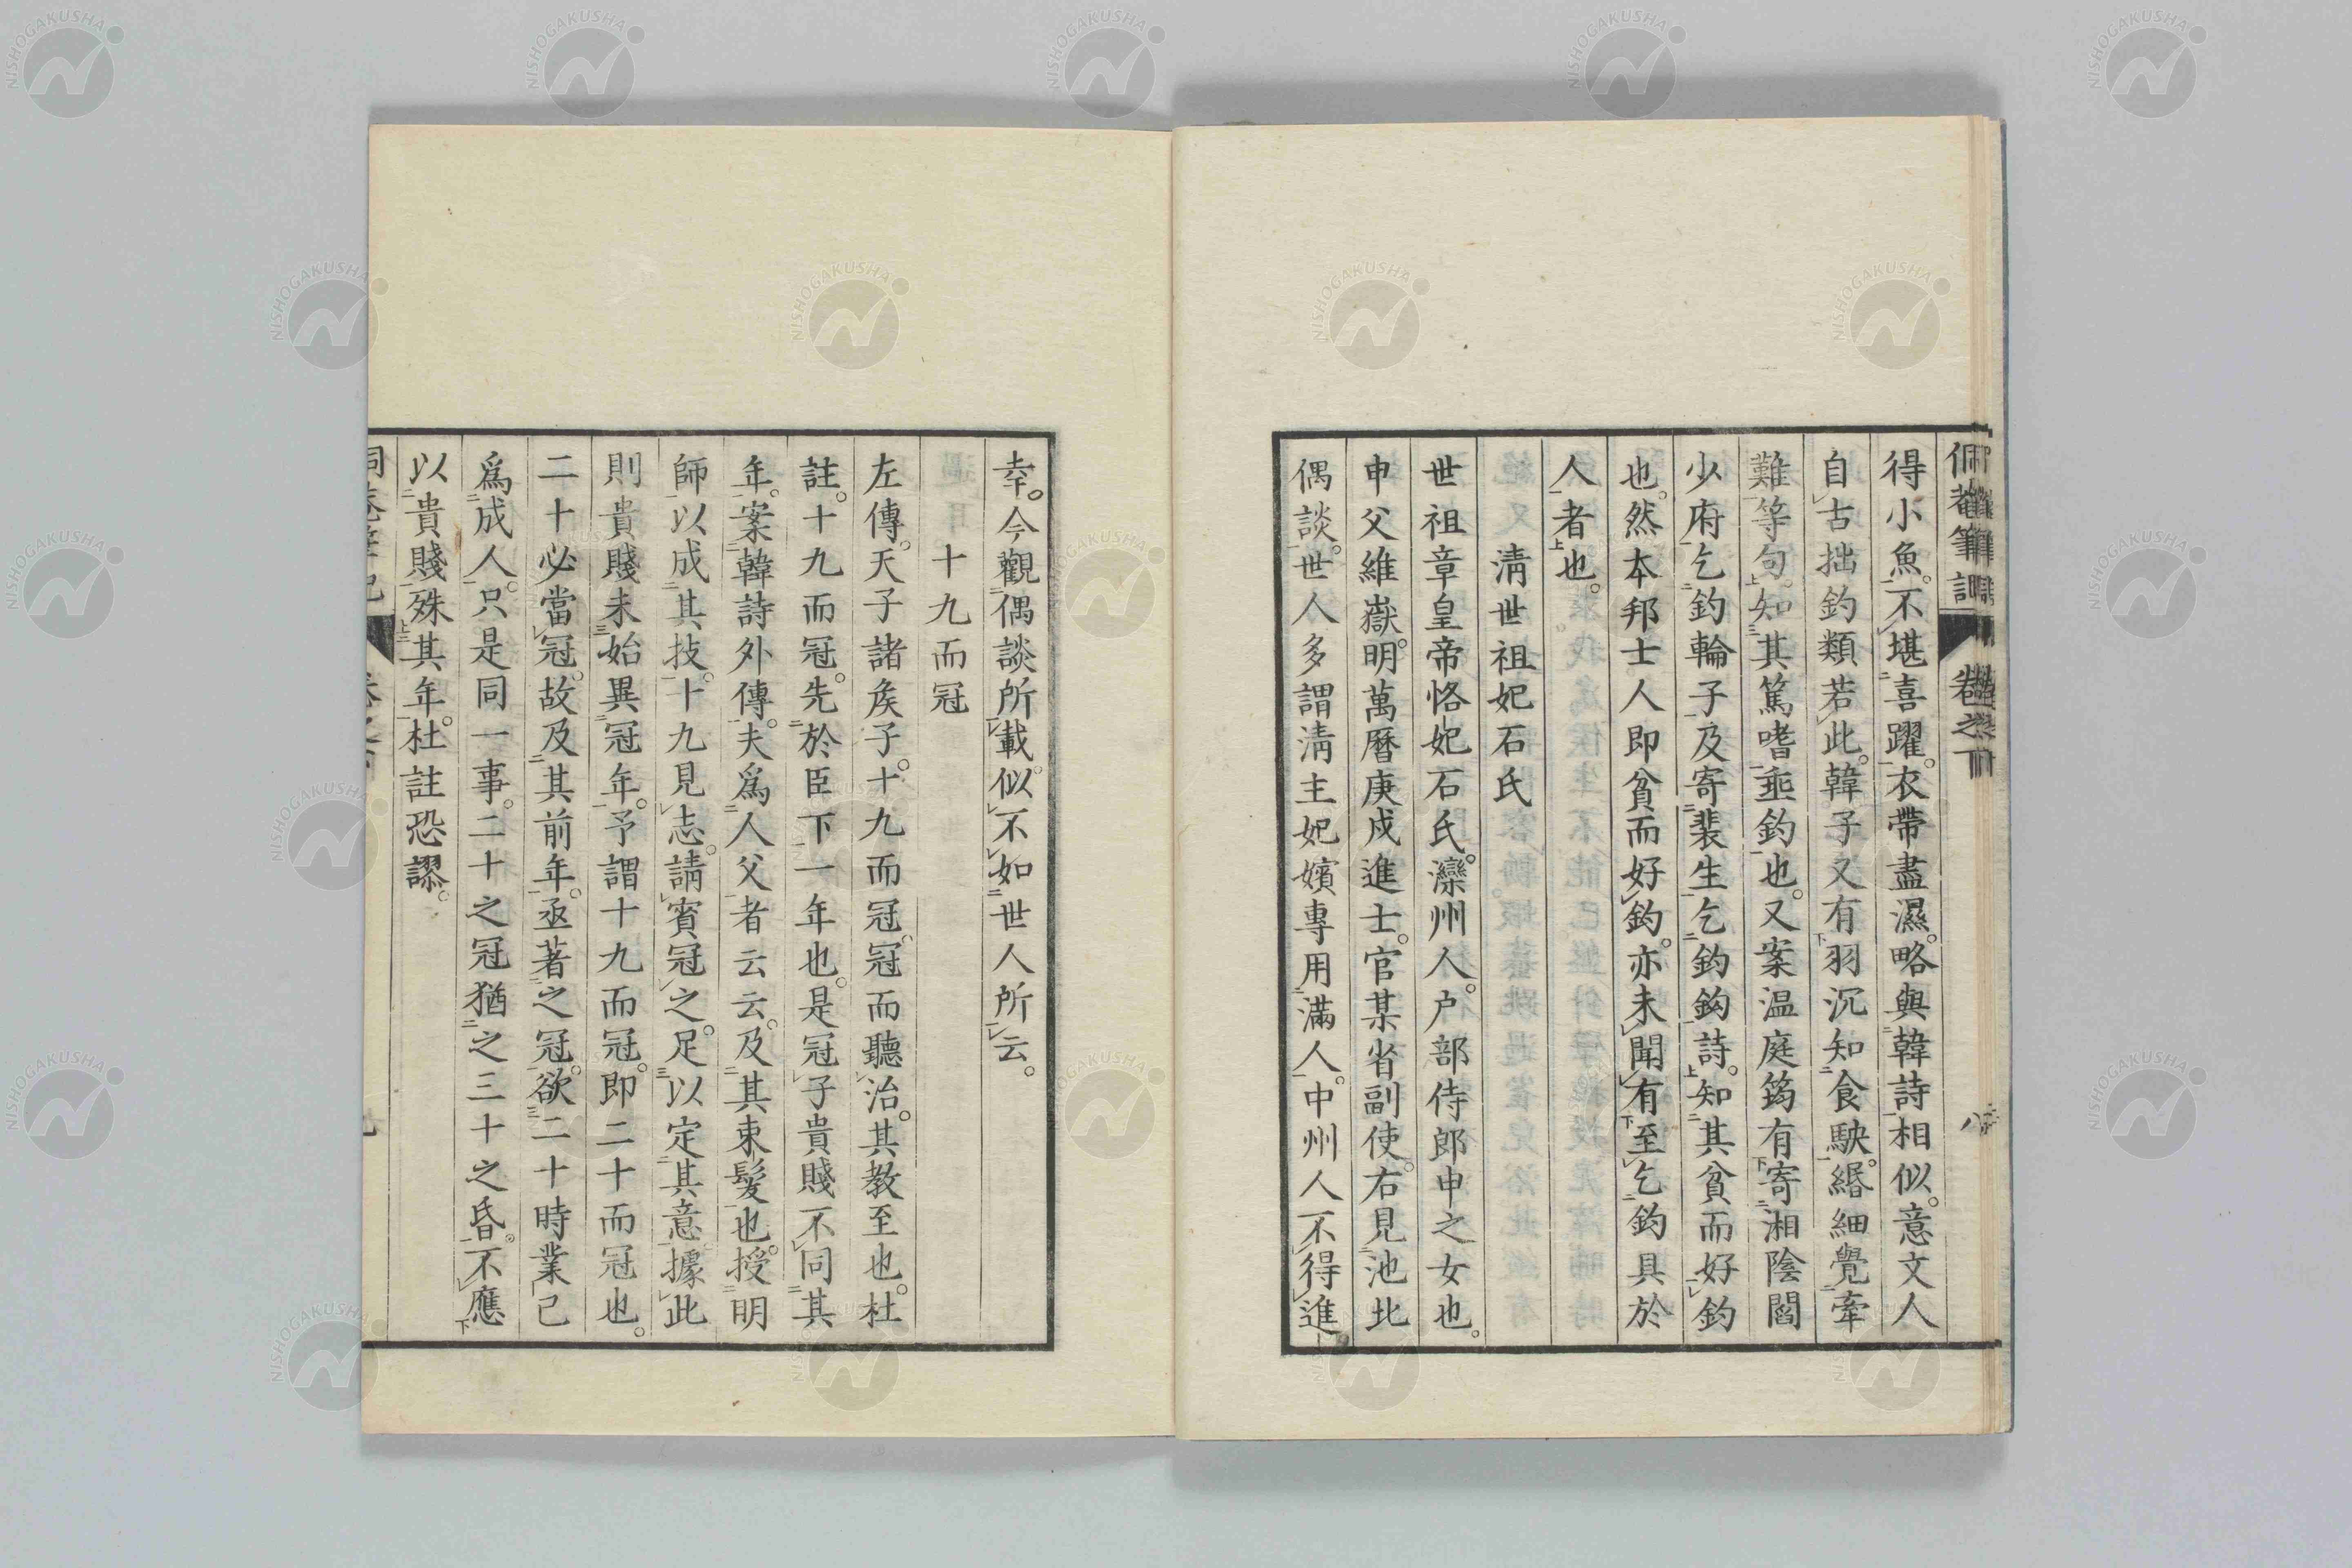 得小魚。不堪喜躍。衣帶盡濕。略與韓詩相似。意文人
自古拙釣類若此。韓子又有羽沉知食駛。緡細覺牽
難等句。知其篤嗜垂釣也。又案温庭筠有寄湘陰閻
少府乞釣輪子及寄裴生乞釣鈎詩。知其貧而好釣
也。然本邦士人即貧而好釣。亦未聞有至乞釣具於
人者也。
淸世祖妃石氏
世祖章皇帝恪妃石氏。灤州人。户部侍郎申之女也。
申父維嶽。明萬曆庚戍進士。官某省副使。右見池北
偶談。世人多謂淸主妃嬪專用滿人。中州人不得進
幸。今觀偶談所載。似不如世人所云。
十九而冠
左傳。天子諸矦子。十九而冠。冠而聽治。其教至也。杜
註。十九而冠。先於臣下一年也。是冠子貴賤不同其
年。案韓詩外傳。夫爲人父者云云。及其束髮也。授明
師以成其技。十九見志。請賓冠之。足以定其意。據此
則貴賤未始異冠年。予謂十九而冠。即二十而冠也。
二十必當冠。故及其前年。亟著之冠。欲二十時業已
爲成人。只是同一事。二十之冠猶之三十之昏。不應
以貴賤殊其年。杜註恐謬。